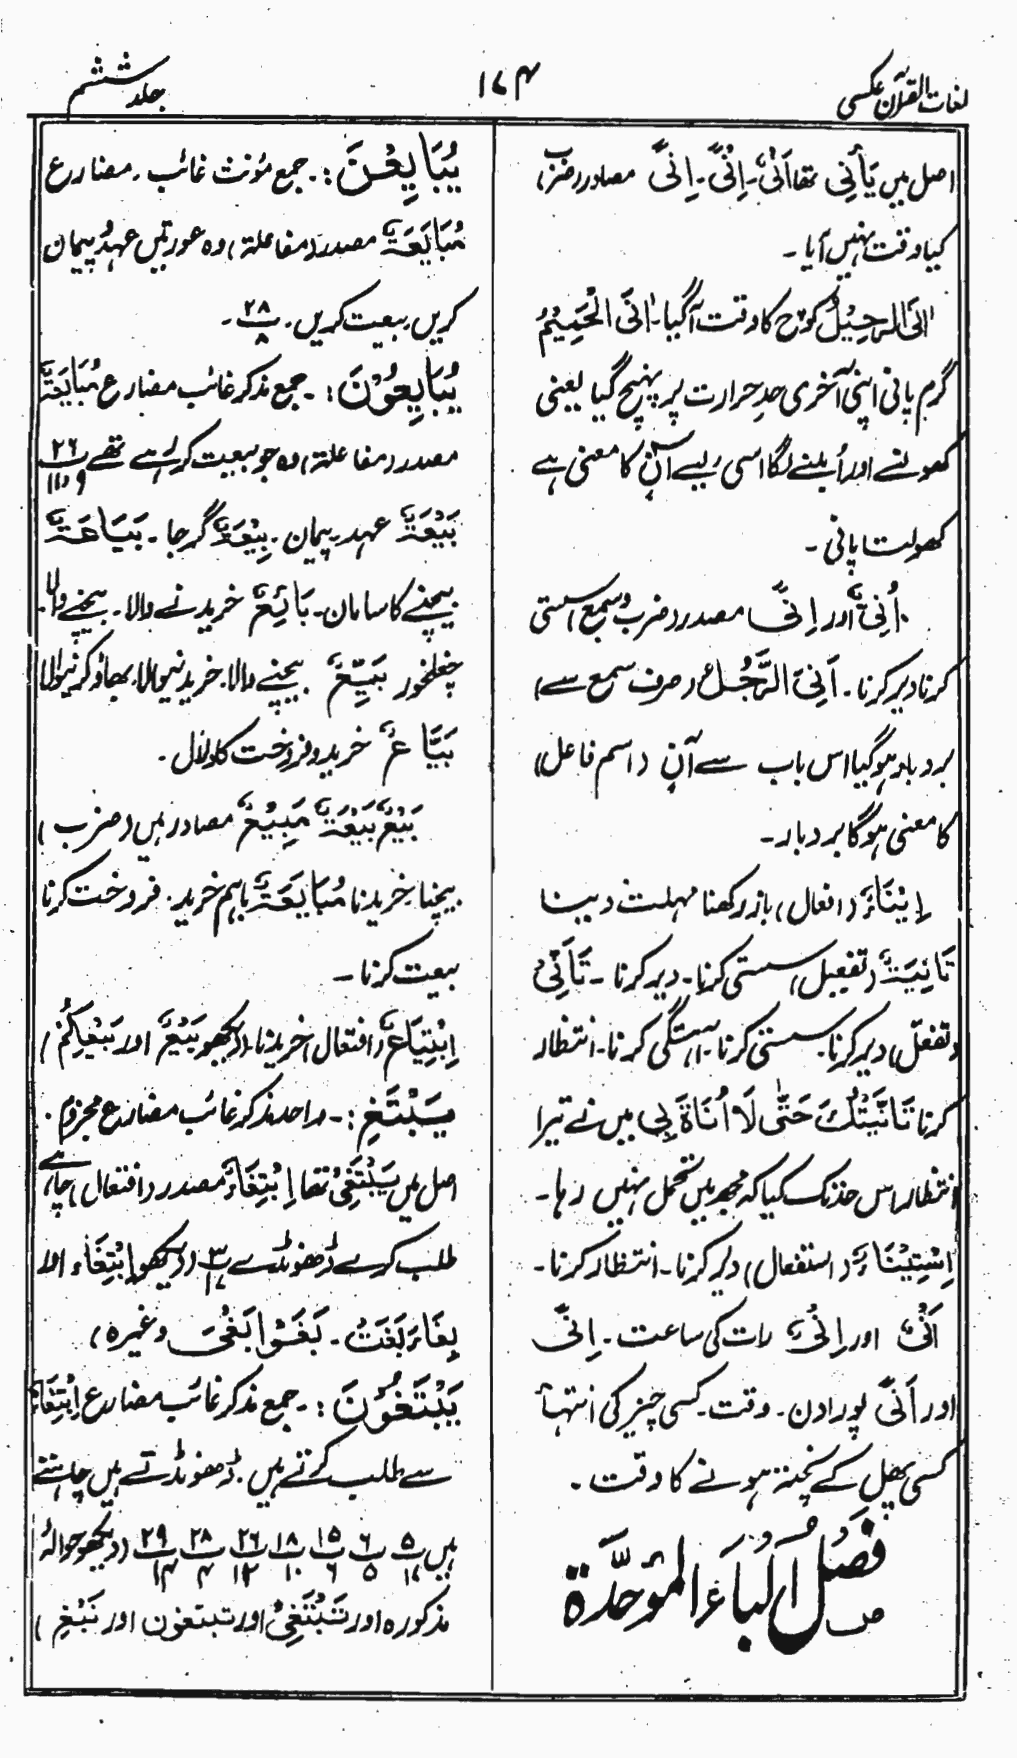 لغات القرآن عکسی
۱۷۴
جلد ششم
اصل میں یَأْنِی تھا اَنْیٌ۔ اِنْیً۔ اِنیً مصادر (ضرب)
کیا وقت نہیں آیا۔
اَنَی الرَّحِیْلُ کوچ کا وقت آگیا۔ اَنَی الْحَمِیْمُ
گرم پانی اپنی آخری حدِ حرارت پر پہنچ گیا یعنی
کھولنے اور اُبلنے لگا اسی لیے آنٍ کا معنی ہے
کھولتا پانی۔
اُنِیٌّ اور اِنیً مصدر (ضرب و سمع) سستی
کرنا دیر کرنا۔ اَنِیَ الرَّجُلُ (صرف سمع سے)
بردبار ہوگیا اس باب سے آنٍ (اسم فاعل)
کا معنی ہوگا بردبار۔
اِیْنَاءٌ (افعال) باز رکھنا مہلت دینا
تَانِیَةٌ (تفعیل) سستی کرنا۔ دیر کرنا۔ تَأَنِّیْ
(تفعّل) دیر کرنا۔ سستی کرنا۔ آہستگی کرنا۔ انتظار
کرنا تَانَّیْتُكَ حَتّٰی لَا اُنَاةَ بِی میں نے تیرا
انتظار اس حد تک کیا کہ مجھ میں تحمل نہیں رہا۔
اِسْتِیْنَاءٌ (استفعال) دیر کرنا۔ انتظار کرنا۔
اَنْیٌ اور اِنْیٌ رات کی ساعت۔ اِنیً
اور اَنیً پورا دن۔ وقت۔ کسی چیز کی انتہا
کسی پھل کے پختہ ہونے کا وقت۔
فَصْلُ الْبَاءِ الْمُوَحَّدَة
یُبَایِعْنَ:۔ جمع مؤنث غائب۔ مضارع
مُبَایَعَةٌ مصدر (مفاعلة) وہ عورتیں عہد و پیمان
کریں بیعت کریں۔ ۲۸ ب ۸۔
یُبَایِعُوْنَ:۔ جمع مذکر غائب مضارع مُبَایَعَةٌ
مصدر (مفاعلة) وہ جو بیعت کر رہے تھے ۲۶ ب ۹ و ۱۱
بَیْعَةٌ عہد۔ پیمان۔ بِیْعَةٌ گرجا۔ بَیَاعَةٌ
بیچنے کا سامان۔ بَائِعٌ خریدنے والا۔ بیچنے والا۔
چغلخور بَیِّعٌ بیچنے والا۔ خریدنیوالا۔ بھاؤ کرنیوالا
بَیَّاعٌ خرید و فروخت کا دلال۔
بَیْعٌ بَیْعَةٌ مَبِیْعٌ مصادر ہیں (ضرب)
بیچنا۔ خریدنا مُبَایَعَةٌ باہم خرید۔ فروخت کرنا
بیعت کرنا۔
اِبْتِیَاعٌ (افتعال) خریدنا۔ (دیکھو بَیْعٌ اور بَیْعِکُمْ)
یَبْتَغِ:۔ واحد مذکر غائب مضارع مجزوم۔
اصل میں یَبْتَغِیْ تھا اِبْتِغَاءٌ مصدر (افتعال) چاہے
طلب کرے ڈھونڈے ۳ ب ۱۷ (دیکھو اِبْتِغَاء اور
بِغَاءٌ بَغَتْ۔ بَغَوْا بَغْیَ وغیرہ)
یَبْتَغُوْنَ:۔ جمع مذکر غائب مضارع اِبْتِغَاءٌ
سے طلب کرتے ہیں۔ ڈھونڈتے ہیں چاہتے
ہیں ۵ ۱۷ ۶ ۵ ۱۵ ۶ ۱۸ ۱۰ ۲۶ ۱۲ ۲۸ ۴ ۲۹ ۱۴ (دیکھو حوالۂ
مذکورہ اور تَبْتَغِیْ اور تبتغون اور نَبْغِ)